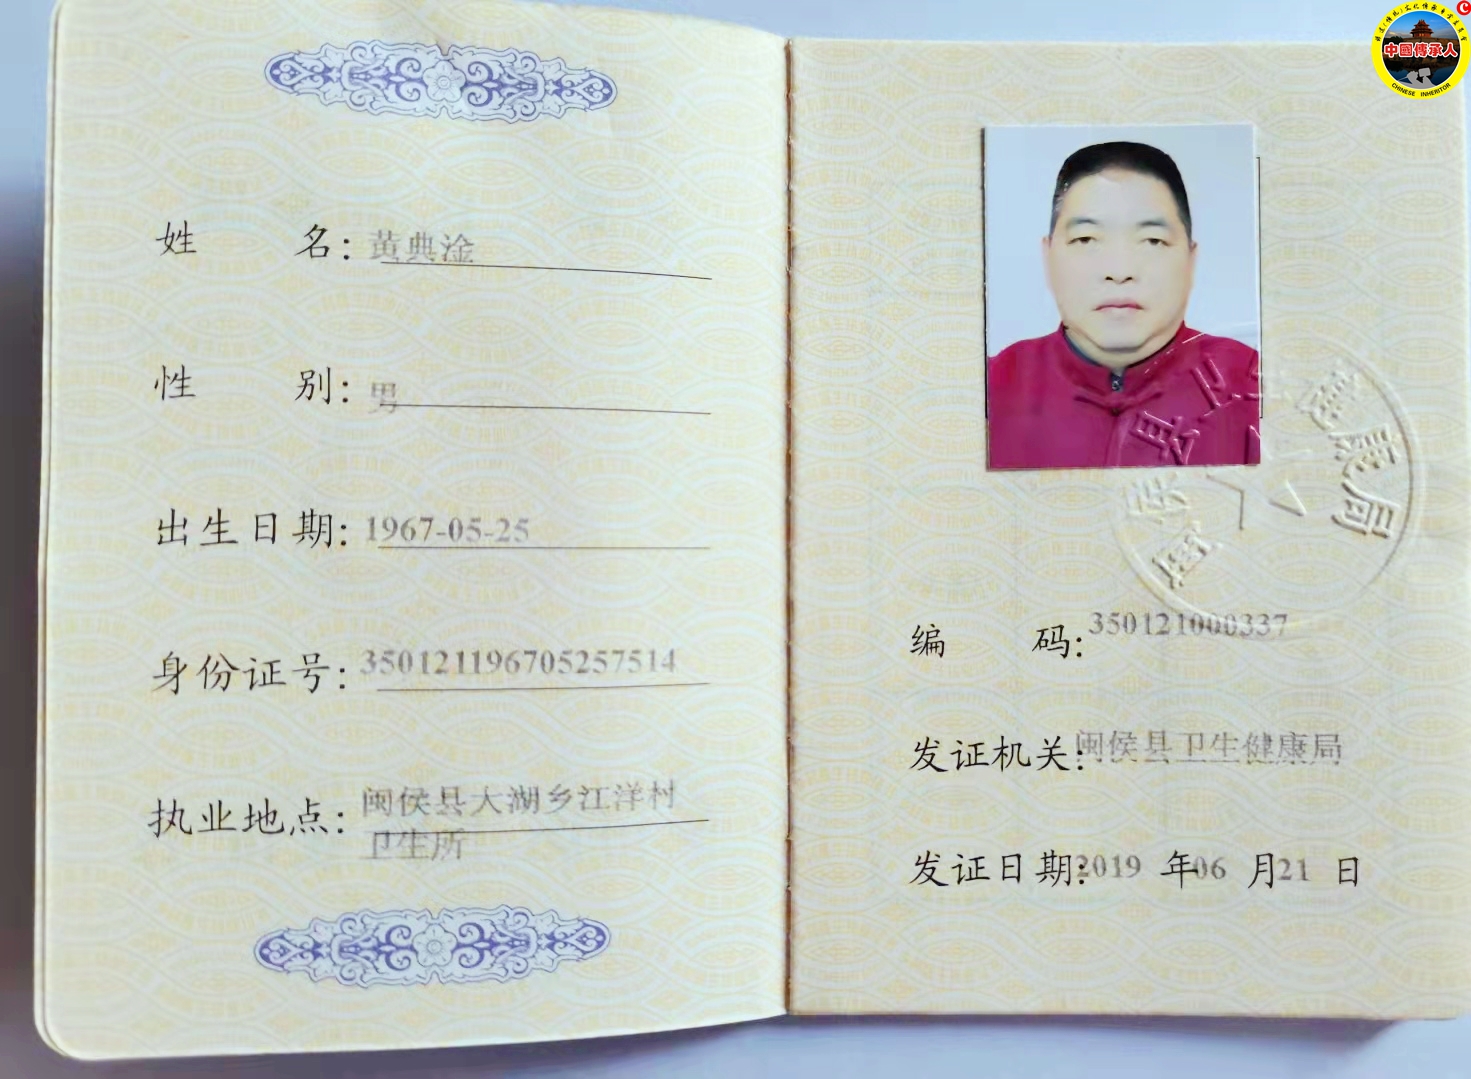 姓 名: 黄典淦
性 别: 男
出生日期: 1967-05-25
身份证号: 350121196705257514
执业地点: 闽侯县大湖乡江洋村
卫生所
中國傳承人
CHINESE INHERITOR
闽侯县卫生健康局
编 码: 350121000337
发证机关: 闽侯县卫生健康局
发证日期: 2019 年 06 月 21 日